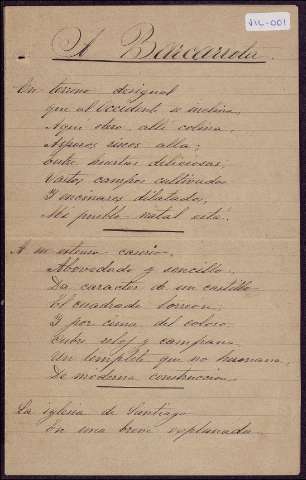 VIL-001
A Barcarrota.
En terreno desigual
que al Occidente se inclina,
Aqui otero, alli colina,
Asperos riscos alla;
Entre huertas deliciosas,
Vastos campos cultivados
I encinares dilatados,
Mi pueblo natal esta.
A su extenso caserio,
Abovedado y sencillo,
Da caracter de un castillo
El cuadrado torreon.
I por cima del coloso
Entre reloj y campana
Un templete que no hermana,
De moderna construccion.
La iglesia de Santiago
En una breve explanada